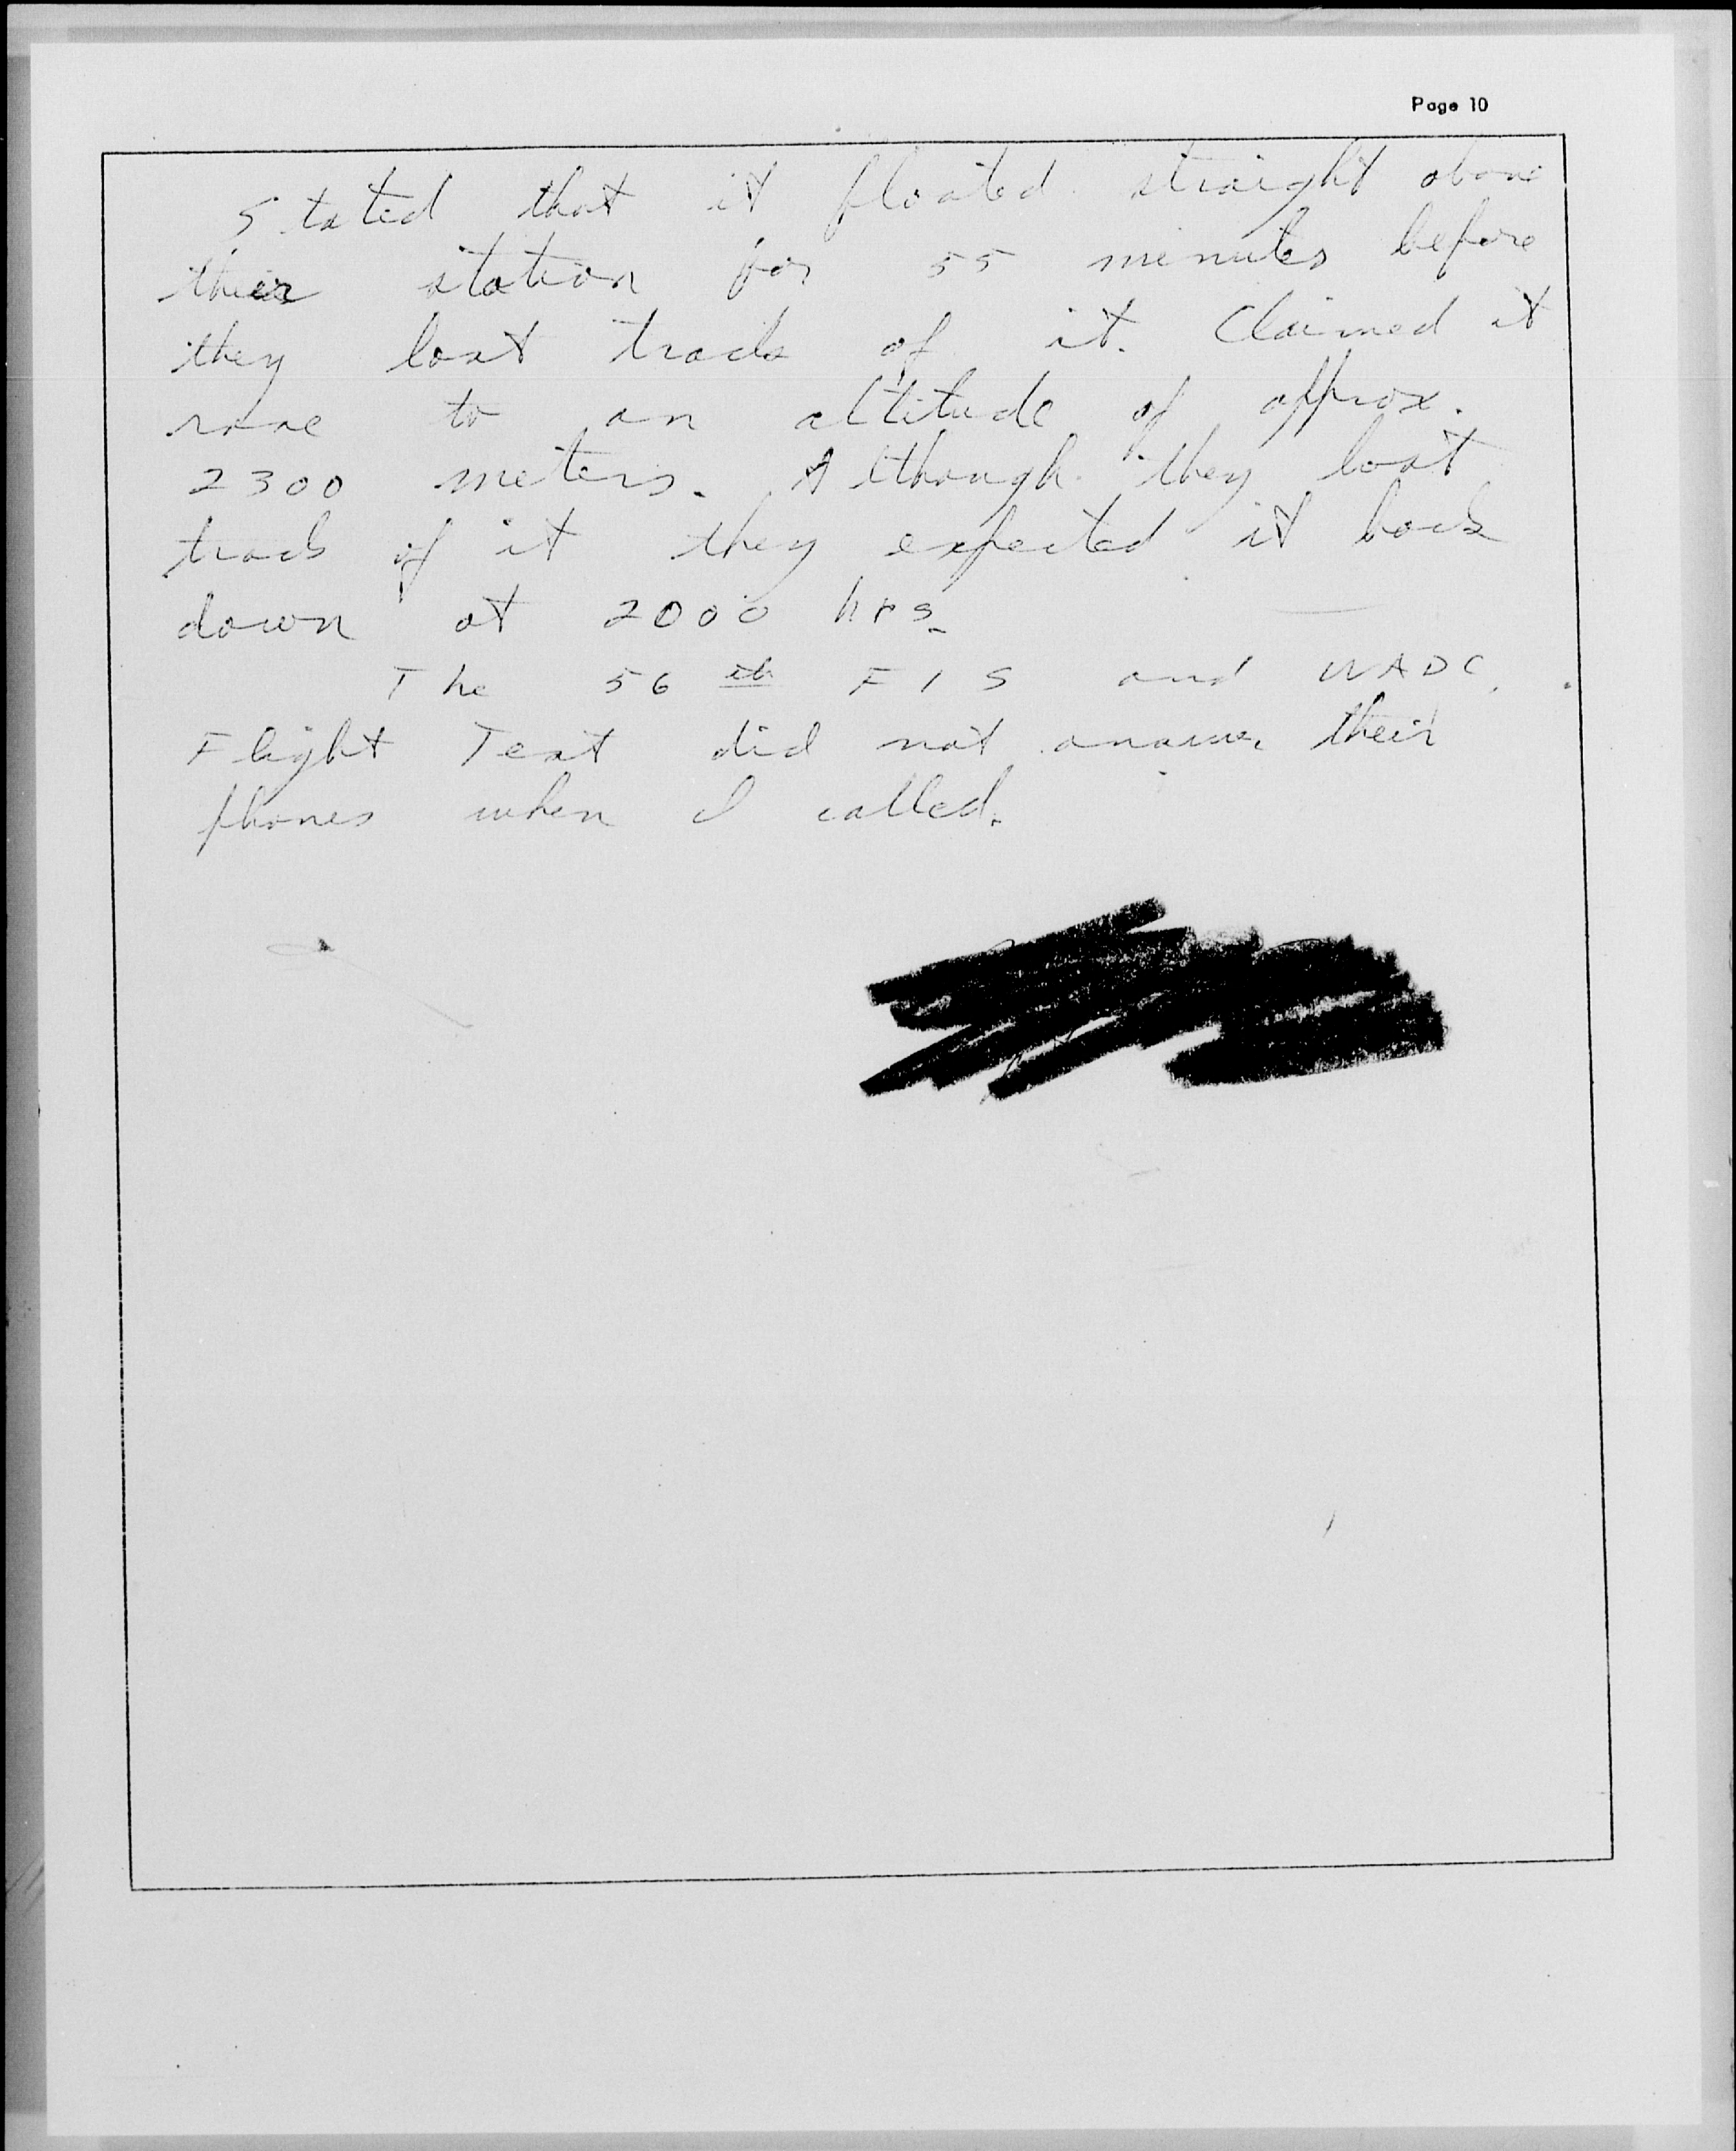 Page 10
Stated that it floated straight above
their station for 55 minutes before
they lost track of it. Claimed it
rose to an altitude of approx.
2300 meters. Although they lost
track of it they expected it back
down at 2000 hrs.
The 56th FIS and WADC
Flight Test did not answer their
phones when I called.